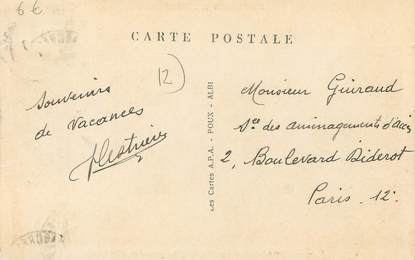 6€
CARTE POSTALE
12
Souvenirs
de Vacances
Les Cartes A.P.A. - POUX - ALBI
Monsieur Guiraud
Sce des aménagements
2, Boulevard Diderot
Paris. 12.